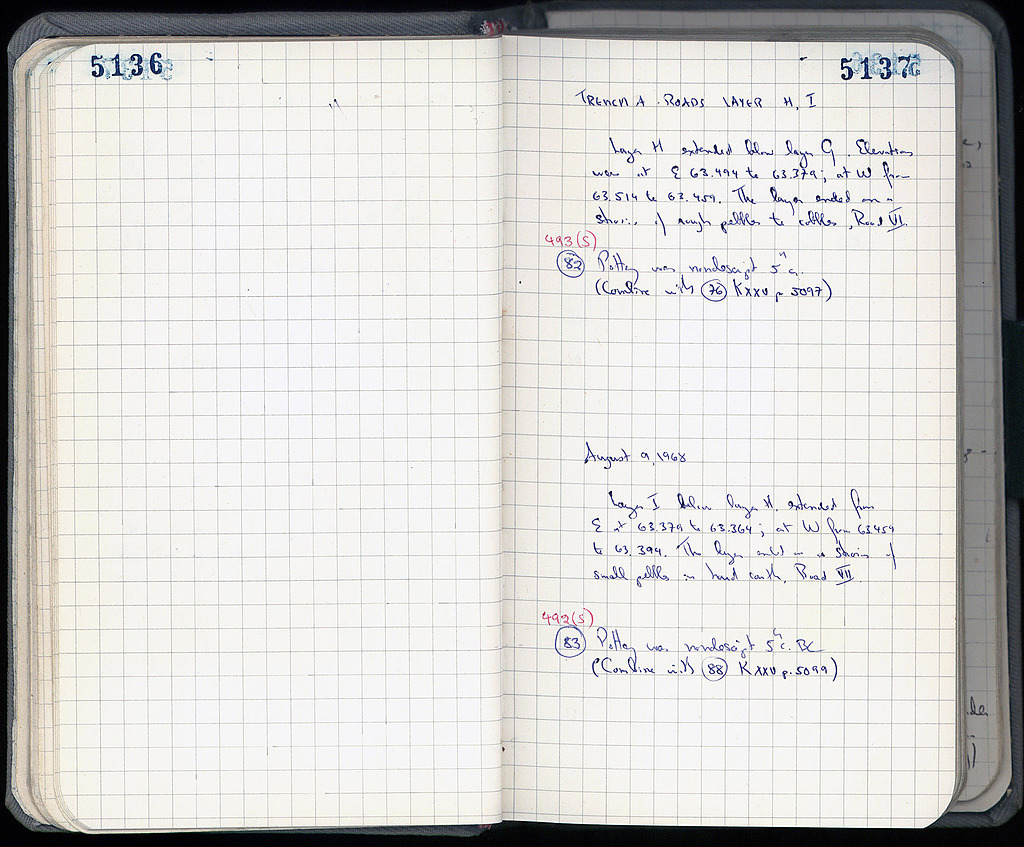 5136
5137
TRENCH A - ROADS LAYER H, I
Layer H extended below layer G. Elevations
were at E 63.494 to 63.379; at W from
63.514 to 63.459. The layer ended on a
strosis of rough pebbles to cobbles, Road VI.
493(S)
82 Pottery was nondescript 5th c.
(Combine with 76 KXXV p. 5097)
August 9, 1968
Layer I below layer H, extended from
E at 63.379 to 63.364; at W from 63.459
to 63.394. The layer ended on a strosis of
small pebbles in hard earth, Road VII
492(S)
83 Pottery was nondescript 5th c. BC
(Combine with 88 KXXV p. 5099)